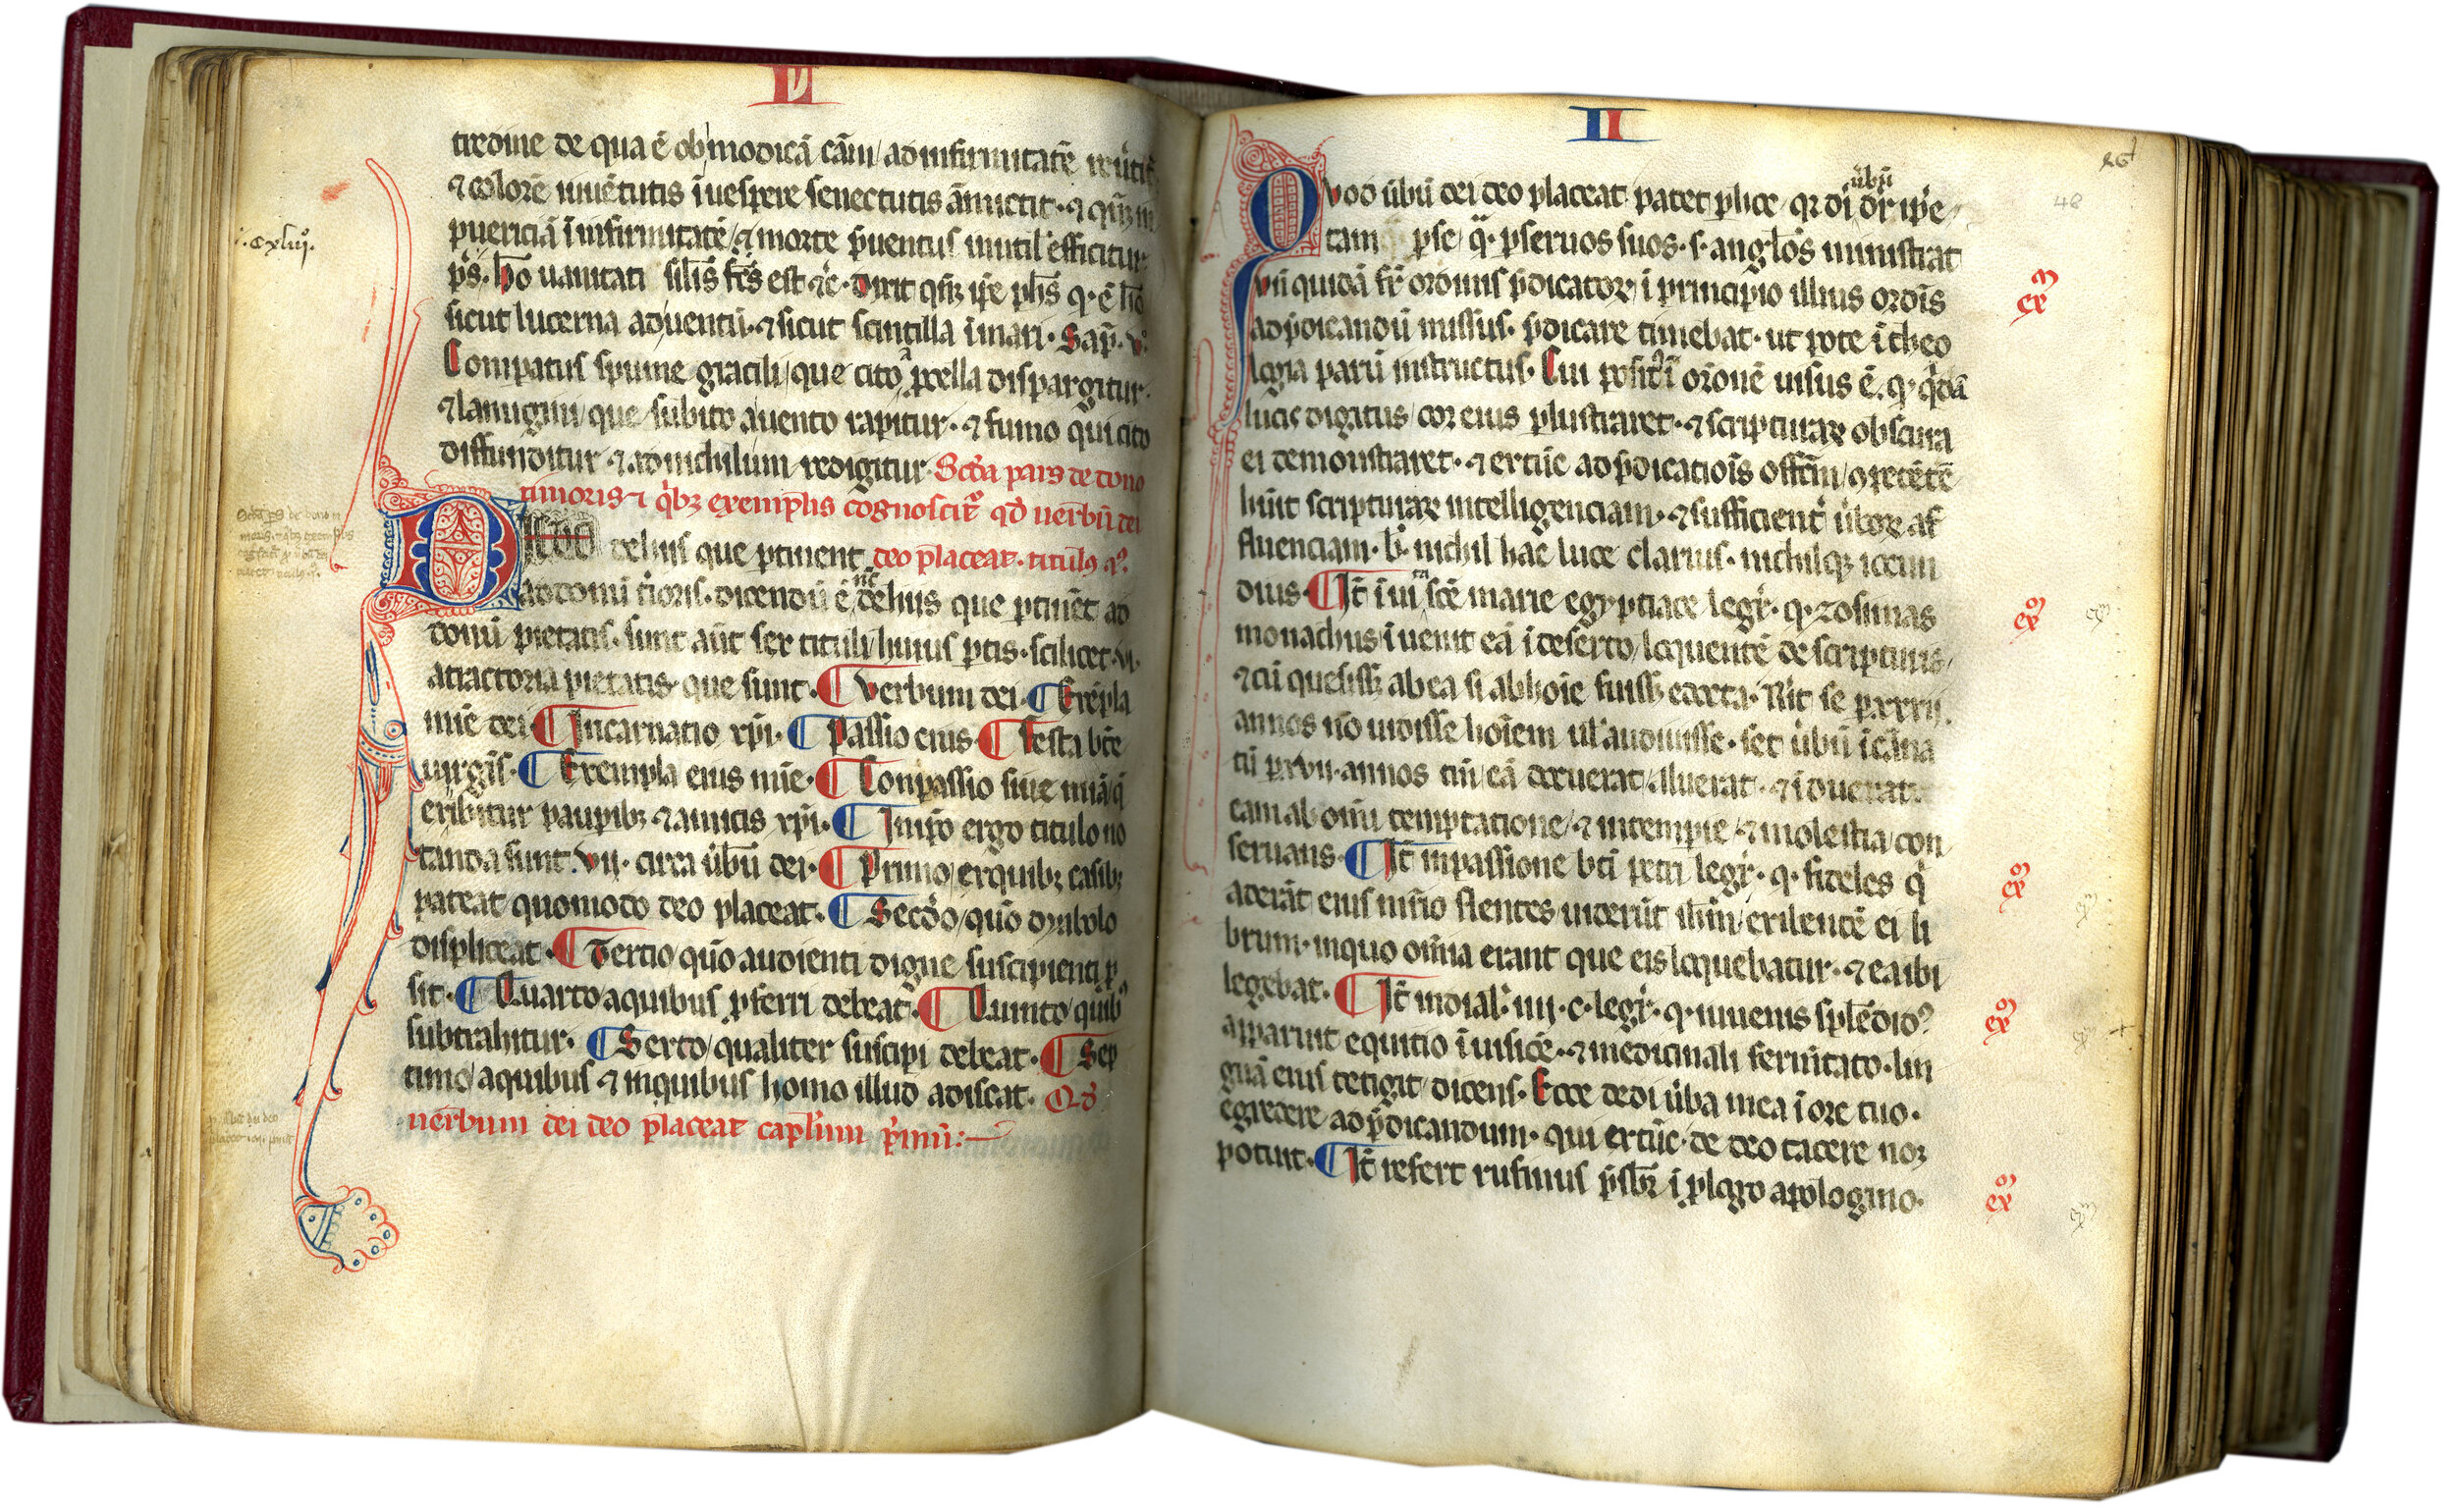 L
tredine de qua ē ob modicā cām ad infirmitatē
⁊ colorē iuuētutis ī uespere senectutis āmictit · ⁊
.cxliij.
puericiā ī infirmitatē ⁊ morte p̄uentus inutil' efficitur
p̄s. hō uanitati sil̄is fc̄s est ⁊c̄ · dixit qn̄ꝫ ip̄e ph̄s q· ē hō
sicut lucerna ad uentū · ⁊ sicut scintilla ī mari · Sap̄. v.
Comparatus spume gracili que cito a p̄cella dispargitur ·
⁊ lanugini que subito a uento rapitur · ⁊ fumo qui cito
diffunditur ⁊ ad nichilum redigitur · Sc̄da pars de dono
timoris ⁊ qⁱbꝫ exemplis cognoscitᷣ qd̄ uerbū dei
de hiis que p̄tinent deo placeat · titul̄s
ad donū tīoris · dicendū ē nc̄ de hiis que p̄tinēt ad
donū pietatis · sunt aūt sex tituli huius p̄tis · scilicet · vi
atractoria pietatis que sunt · ¶ Verbum dei · ¶ Exēpla
mīe dei · ¶ Incarnatio xp̄i · ¶ Passio eius · ¶ Festa bt̄e
uirgīs · ¶ Exempla eius mīe · ¶ Conpassio siue mīa q̄
exibitur paup̄ibꝫ ⁊ amicis xp̄i · ¶ In p̄o ergo titulo no
tanda sunt · vij · circa ūbū dei · ¶ Primo ex quibꝫ casibꝫ
pateat quomodo deo placeat · ¶ Secdō quō dyabolo
displiceat · ¶ Tertio quō audienti digne suscipienti p̄
sit · ¶ Quarto a quibus p̄ferri debeat · ¶ Quinto quibꝫ
subtrahitur · ¶ Sexto qualiter suscipi debeat · ¶ Sep
timo a quibus ⁊ in quibus homo illud adiscat · Qd̄
uerbum dei deo placeat capl̄um p̄imū :—
II
48
Quod ūbū dei deo placeat patet pl̄ice q̄ dī ūbū dr̄ ip̄e
tam p̄ se q̄ · p̄ seruos suos · s · angl̄os ministrat
exᵐ
Vn̄ quidā fr̄ ordinis p̄dicatoꝝ ī principio illius ordīs
ad p̄dicandū missus · p̄dicare timebat · ut pote ī theo
logia parū instructus · Cui posito ī or̄onē uisus ē · q· q̄dā
lucis digitus cor eius p̄lustraret · ⁊ scripturaꝝ obscura
ei demonstraret · ⁊ ex tūc ad p̄dicatiōis offm̄ ꝯpetētē
hūit scripturaꝝ intelligenciam · ⁊ sufficientē ūboꝝ af
fluenciam · vn̄ nichil hac luce clarius · nichilqꝫ iocun
exᵐ
dius · ¶ It̄ ī uita sc̄e marie egyptiace legⁱ · q· zosimas
monachus īuenit eā ī deserto loquentē de scripturis
⁊ cū quesissꝫ ab ea si ab hoīe fuissꝫ edocta · ait se p̄ xxxij.
annos nō uidisse hoīem ul̄ audiuisse · set ūbū īcarna
tū p̄ xvij · annos cū eā docuerat illuerat · ⁊ īduerat
eam ab omī temptatione ⁊ intemp̄ie ⁊ molestia con
exᵐ
seruans · ¶ It̄ in passione bt̄i petri legⁱ · q· fideles qⁱ
aderāt eius mr̄io flentes uiderūt ih̄m exibentē ei li
brum · in quo om̄ia erant que eis loquebatur · ⁊ ea ibi
exᵐ
legebat · ¶ It̄ in dial · iiij · c· legⁱ · q· iuuenis splēdidꝰ
apparuit equitio ī uisiōe · ⁊ medicinali ferrūtato · lin
guā eius tetigit dicens · Ecce dedi ūba mea ī ore tuo ·
egredere ad p̄dicandum · qui ex tūc · de deo tacere non
exᵐ
potuit · ¶ It̄ refert rufinus p̄sbꝫ ī plogo apologitico ·